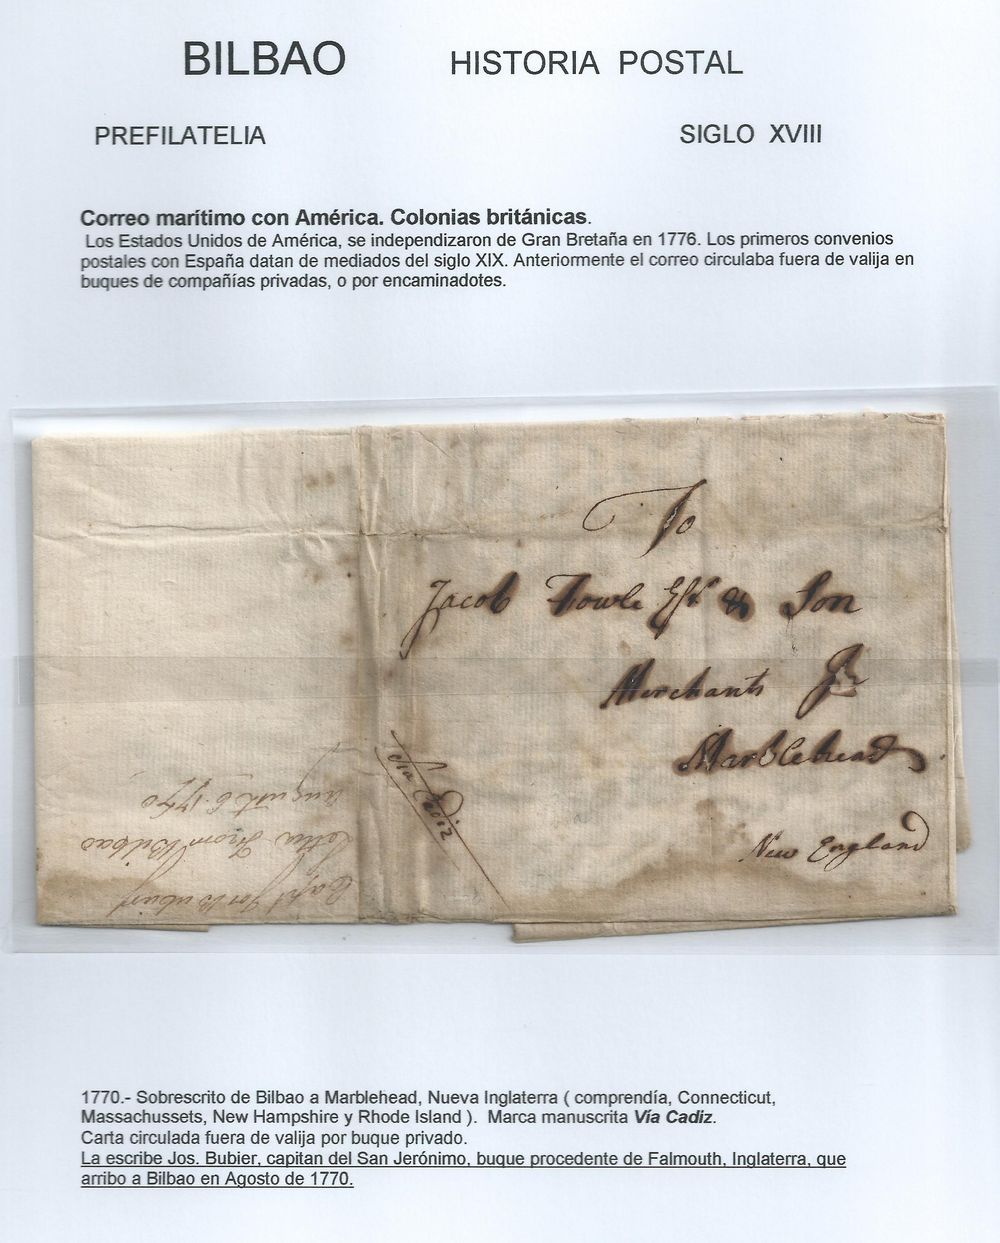 BILBAO HISTORIA POSTAL
PREFILATELIA SIGLO XVIII
Correo marítimo con América. Colonias británicas.
Los Estados Unidos de América, se independizaron de Gran Bretaña en 1776. Los primeros convenios
postales con España datan de mediados del siglo XIX. Anteriormente el correo circulaba fuera de valija en
buques de compañías privadas, o por encaminadotes.
To
Jacob Fowle Esqr & Son
Merchants In
Marblehead
New England
Via Cadiz
Capt Jos Bubier
Letter From Bilbao
August 6 1770
1770.- Sobrescrito de Bilbao a Marblehead, Nueva Inglaterra ( comprendía, Connecticut,
Massachussets, New Hampshire y Rhode Island ). Marca manuscrita Vía Cadiz.
Carta circulada fuera de valija por buque privado.
La escribe Jos. Bubier, capitan del San Jerónimo, buque procedente de Falmouth, Inglaterra, que
arribo a Bilbao en Agosto de 1770.